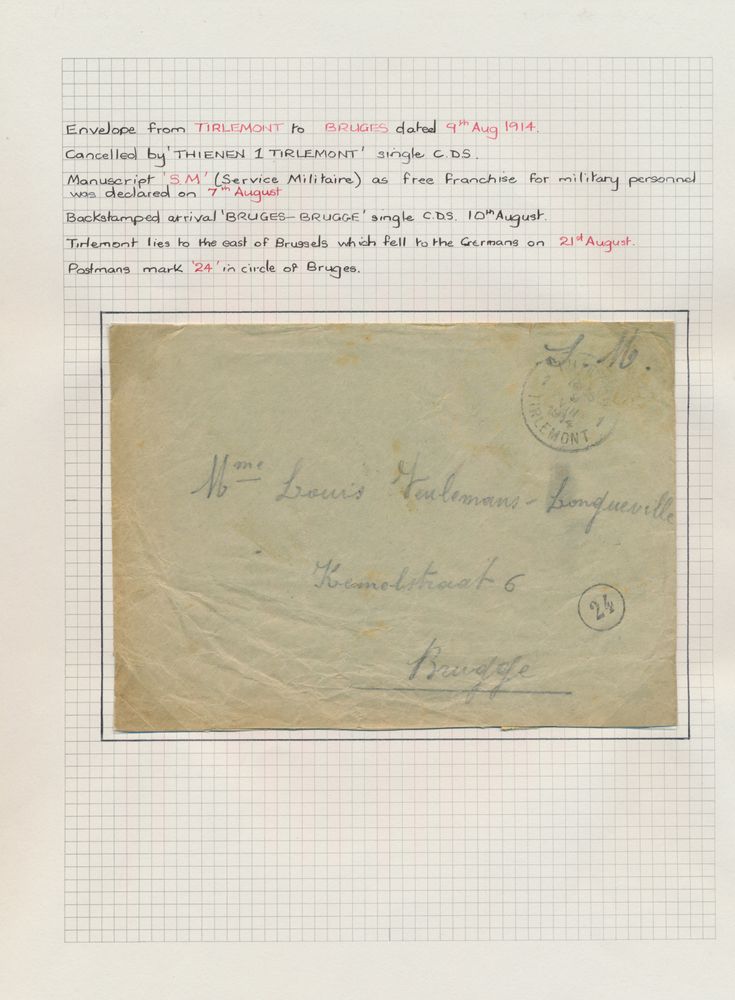 Envelope from TIRLEMONT to BRUGES dated 9th Aug 1914.
Cancelled by 'THIENEN 1 TIRLEMONT' single C.D.S.
Manuscript 'S.M' (Service Militaire) as free franchise for military personnel
was declared on 7th August
Backstamped arrival 'BRUGES-BRUGGE' single C.D.S. 10th August.
Tirlemont lies to the east of Brussels which fell to the Germans on 21st August.
Postmans mark '24' in circle of Bruges.
S. M.
1 1
TIRLEMONT
Mme Louis Veulemans - Longueville
Kemelstraat 6
24
Brugge